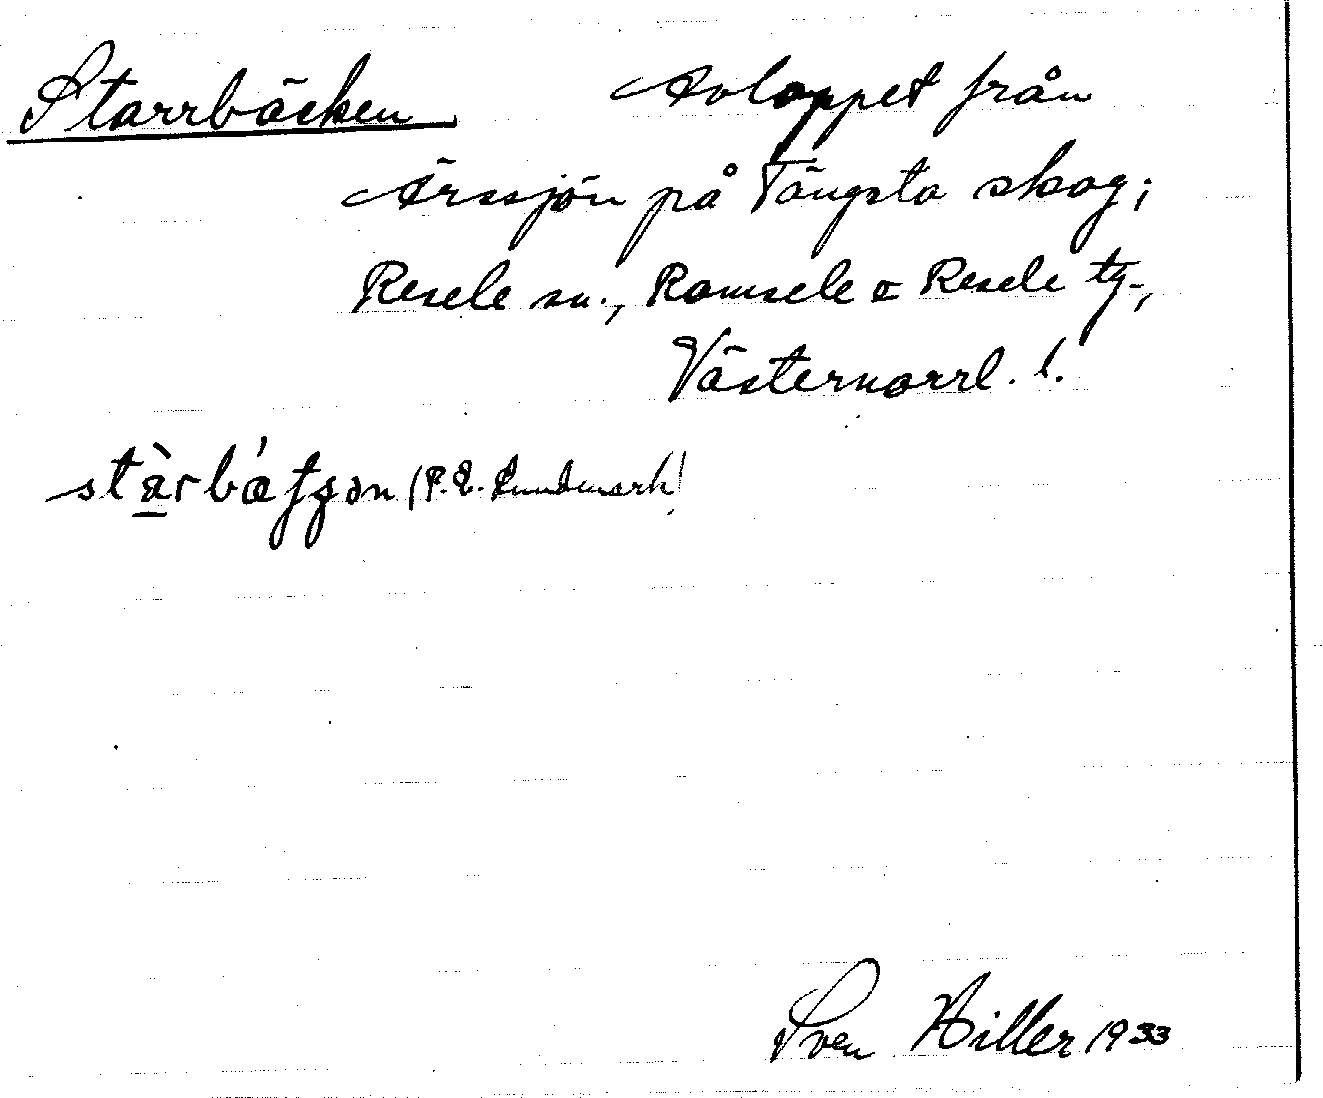 Starrbäcken Avloppet från
Ärssjön på Tängsta skog;
Resele sn., Ramsele o Resele tg.,
Västernorrl. l.
(P.E. Lundmark)
Sven Hiller 1933